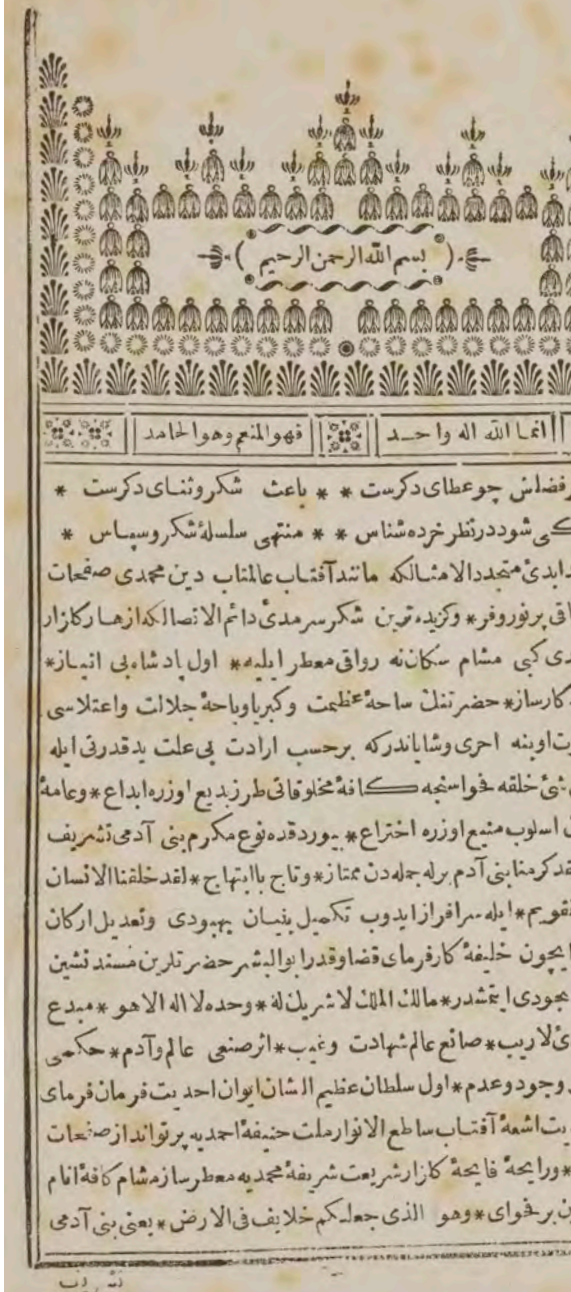 بسم الله الرحمن الرحيم
انما الله اله واحد
فهو المنعم وهو الحامد
فضلش چو عطای دکرست * * باعث شکر و ثنای دکرست *
کی شود در نظر خرده شناس * * منتهی سلسلهٔ شکر و سپاس *
ابدیٔ متجدد الامثالکه مانند آفتاب عالمتاب دین محمدی صفحات
پرنور و فر * وکزیده ترین شکر سرمدیٔ دائم الاتصالکه ازهار کلزار
کبی مشام سکان نه رواقی معطر ایلیه * اول پادشاه بی انباز *
کارساز * حضرتنک ساحهٔ عظمت وکبریا وباحهٔ جلالت واعتلاسی
اوینه احری وشایاندرکه برحسب ارادت بی علت ید قدرتی ایله
شیٔ خلقه فحواسنجه کافهٔ مخلوقاتی طرز بدیع اوزره ابداع * وعامهٔ
اسلوب منیع اوزره اختراع * بیوردقده نوع مکرم بنی آدمی تشریف
لقد کرمنا بنی آدم برله جمله دن ممتاز * وتاج باابتهاج * لقد خلقنا الانسان
تقویم * ایله سرافراز ایدوب تکمیل بنیان بهبودی وتعدیل ارکان
ایچون خلیفهٔ کارفرمای قضا وقدر ابوالبشر حضرتلرین مسند نشین
ایتمشدر * مالک الملک لاشریک له * وحده لا اله الا هو * مبدع
لاریب * صانع عالم شهادت وغیب * اثر صنعی عالم وآدم * حکمی
وجود وعدم * اول سلطان عظیم الشان ایوان احدیت فرمان فرمای
اشعهٔ آفتاب ساطع الانوار ملت حنیفهٔ احمدیه پرتوانداز صفحات
* ورایحهٔ فایحهٔ کلزار شریعت شریفهٔ محمدیه معطرساز مشام کافهٔ انام
بر فحوای * وهو الذی جعلکم خلایف فی الارض * یعنی بنی آدمی
تشریف